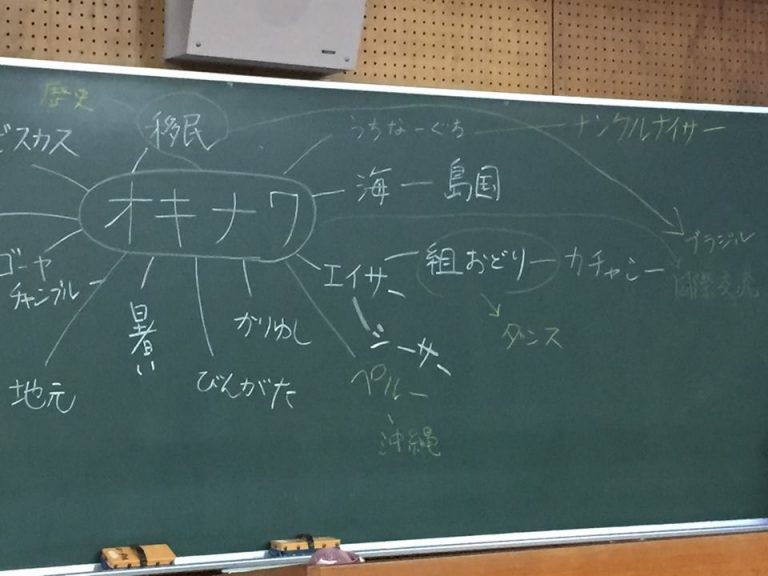 歴史
移民
ビスカス
うちなーぐち ー ナンクルナイサー
オキナワ
海 ー 島国
ブラジル
ゴーヤ
チャンプル
エイサー
組おどり ー カチャシー
国際交流
暑い
かりゆし
シーサー
ダンス
地元
びんがた
ペルー
沖縄